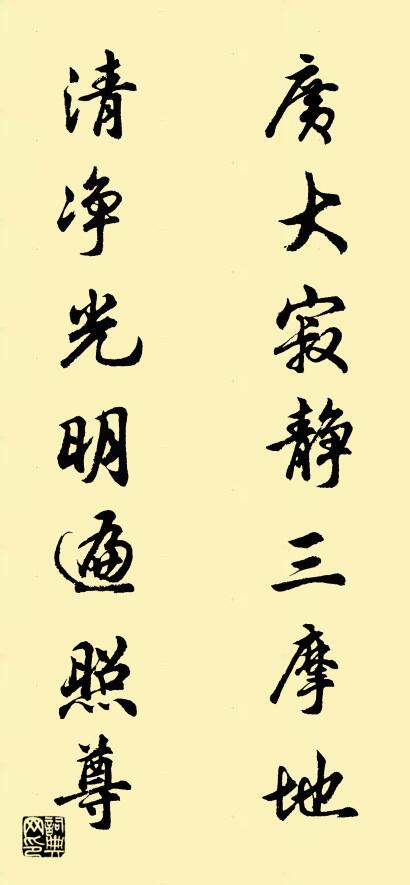 廣大寂静三摩地
清净光明遍照尊
詞典网印